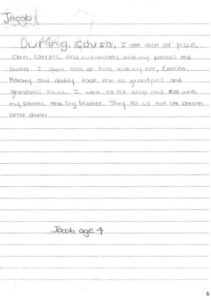 Jacob
During COVID, I ate a lot of pizza,
corn, carrots, and cucumbers with my parents and
brother. I spent a lot of time with my cat,
Mommy and daddy took me to grandpa's and
grandma's house. I went to the shop and with
my parents and big brother. They let us eat ice cream
after dinner.
Jacob age 4
6